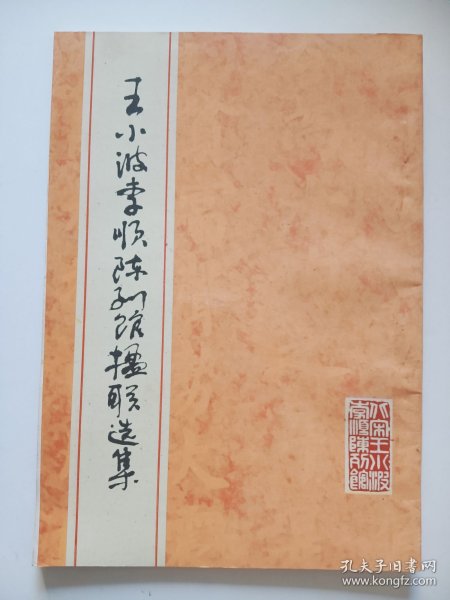 王小波李顺陈列馆楹联选集
北宋王小波
李順陳列館
孔夫子旧书网
www.kongfz.com